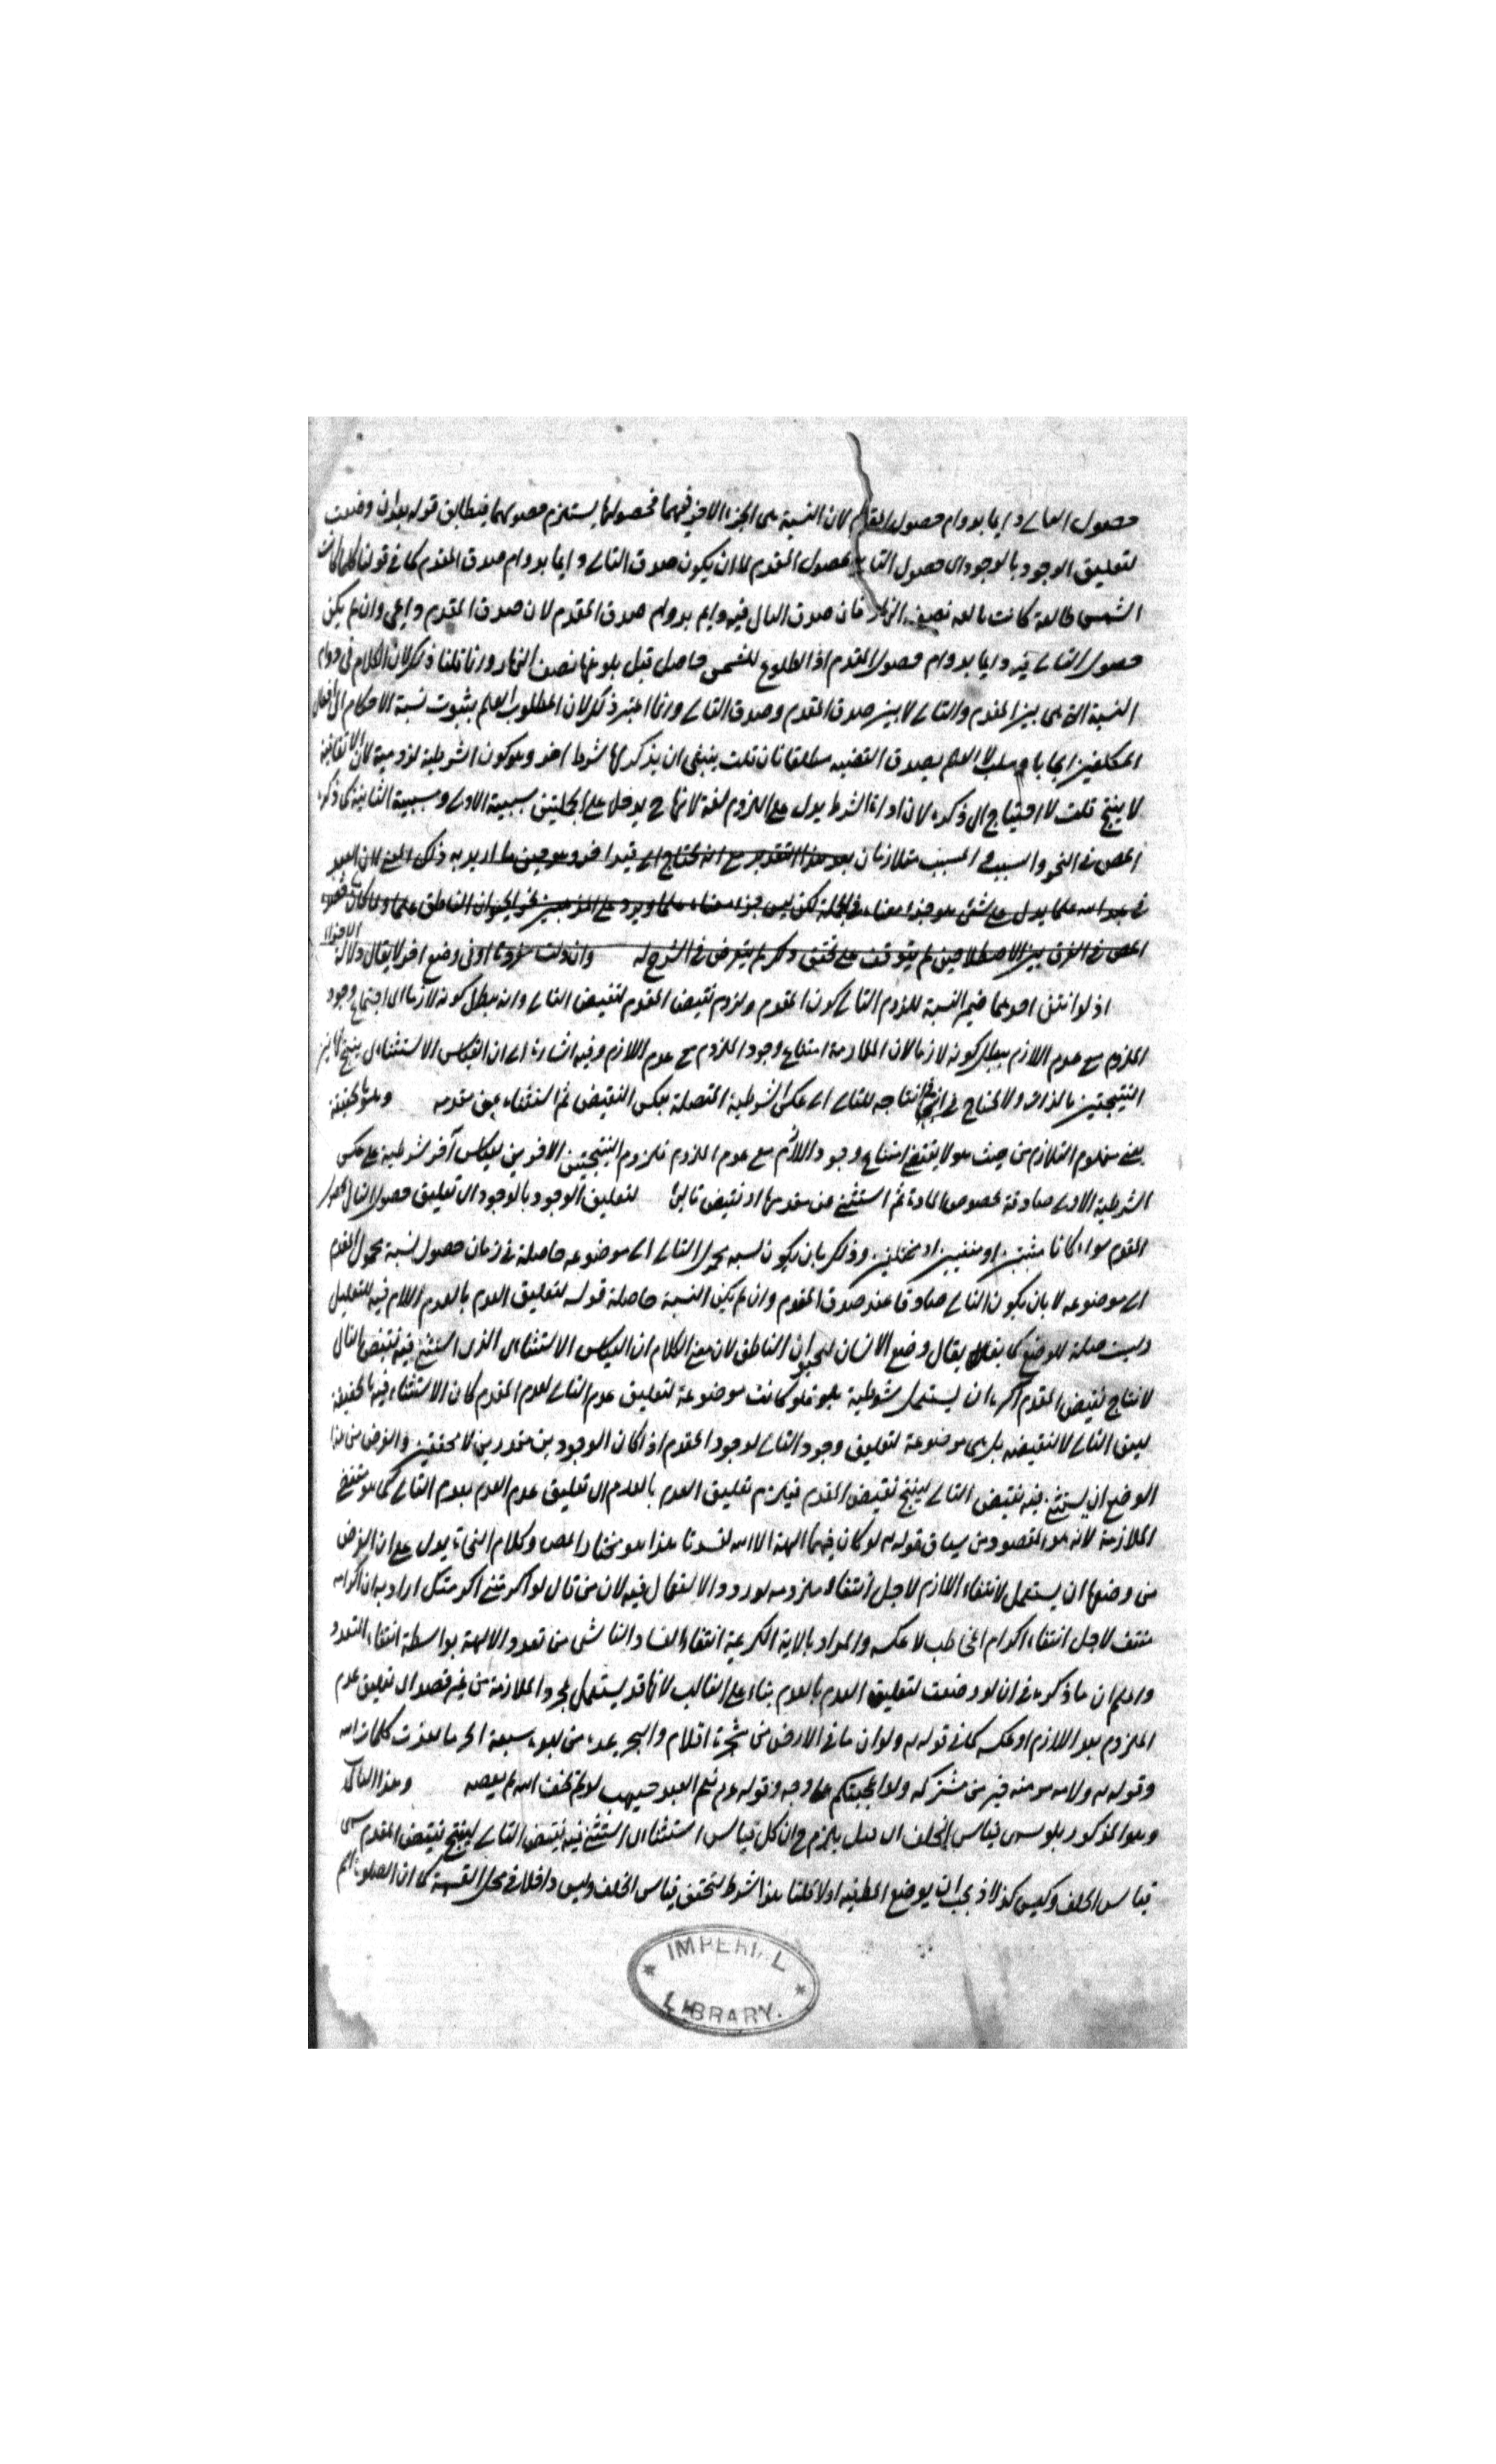 حصول التالى دايما بدوام حصول المقدم لان النسبة هى الجزء الاخير فيهما فحصولها يستلزم حصولهما فيطابق قوله بعد ان وضعت
لتعليق الوجود بالوجود اى حصول التالى بحصول المقدم لا ان يكون صدق التالى دايما بدوام صدق المقدم كما فى قولنا كلما كانت
الشمس طالعة كانت بالغه نصف النهار فان صدق التالى فيه دايم بدوام صدق المقدم لان صدق المقدم دايمى وان لم يكن
حصول التالى فيه دايما بدوام حصول المقدم اذ الطلوع للشمس حاصل قبل بلوغها نصف النهار وانما قلنا ذلك لان الكلام فى دوام
النسبة التى هى بين المقدم والتالى لا بين صدق المقدم وصدق التالى وانما اعتبر ذلك لان المطلوب العلم بثبوت نسبة الاحكام الى افعال
المكلفين ايجابا وسلبا لا العلم بصدق القضيه مطلقا فان قلت ينبغى ان يذكر لها شرط اخر وهو كون الشرطية لزومية لان الاتفاقية
لا ينتج قلت لا احتياج الى ذكره لان اداة الشرط يدل على اللزوم لغة لانها ح يدخل على الجملتين سببية الاولى ومسببية الثانية كما ذكره
المص فى النحو والسبب والمسبب متلازمان بعد هذا التقدير مع انه يحتاج الى قيد اخر وهو حين ما اريد به ذلك المعنى لان العبد
فى عبد الله علما يدل على شئ هو جزء معناه فى الجملة لكن ليس جزء معناه علما ويرد على المذهبين نحو الحيوان الناطق علما ولما كان
المص فى الفرق بين الاصطلاحين لم يتوقف على تحقيق ذلك لم يتعرض فى الشرح له وان دلت فى وضع اخر لا يقال دلالة
اذ لو انتفى احدهما ضمير النسبة للزوم التالى كون المقدم ولزوم نقيض المقدم لنقيض التالى وانه يبطل كونه لازما اى اجتماع وجود
الملزوم مع عدم اللازم يبطل كونه لازما لان الملازمة امتناع وجود الملزوم مع عدم اللازم وفيه اشارة الى ان القياس الاستثنائى ينتج
النتيجتين بالذات ولا يحتاج فى انتاجه للتالى الى عكس الشرطية المتصلة بعكس النقيض ثم استثناء عين مقدمه وهو بالحقيقة
يعنى مفهوم التلازم من حيث هو لا يقتضى امتناع وجود اللازم مع عدم الملزوم فلزوم النتيجتين الاخريين لقياس آخر شرطيته على عكس
الشرطية الاولى صادقة لخصوص المادة ثم استثنى عين مقدمها او نقيض تاليها لتعليق الوجود بالوجود اى تعليق حصول التالى بحصول
المقدم سواء كانا مثبتين او منفيين او مختلفين وذلك بان يكون نسبه محمول التالى الى موضوعه حاصلة فى زمان حصول نسبة محمول المقدم
الى موضوعه لا بان يكون التالى صادقا عند صدق المقدم وان لم يكن النسبة حاصلة قوله لتعليق العدم بالعدم اللام فيه للتعليل
وليست صلة للوضع كما يقال وضع الانسان للحيوان الناطق لان معنى الكلام ان القياس الاستثنائى الذى استثنى فيه نقيض التالى
لانتاج نقيض المقدم اكثره ان يستعمل شرطيته بلو فلو كانت موضوعة لتعليق عدم التالى لعدم المقدم كان الاستثناء فيه بالحقيقة
لعين التالى لا لنقيضه بل هى موضوعة لتعليق وجود التالى لوجود المقدم اذ كان الوجودين مقدرين لا محققين والغرض من هذا
الوضع ان يستثنى فيه نقيض التالى لينتج نقيض المقدم فيلزم تعليق العدم بالعدم اى تعليق عدم المقدم بعدم التالى كما هو مقتضى
الملازمة لانه هو المقصود من سياق قوله تعه لو كان فيهما الهة الا الله لفسدتا هذا هو مختار المص وكلام النحاة يدل على ان الغرض
من وضعها ان يستعمل لانتفاء اللازم لاجل انتفاء ملزومه لورود الاستعمال فيه لان من قال لو اكرمتنى اكرمتك اراد به ان اكرامه
منتف لاجل انتفاء اكرام المخاطب لا عكسه والمراد بالاية الكريمة انتفاء الفساد الناشى من تعدد الالهة بواسطة انتفاء التعدد
واعلم ان ما ذكره فى ان لو وضعت لتعليق العدم بالعدم بناء على الغالب لانها قد يستعمل لمجرد الملازمة من غير قصد الى تعليق عدم
الملزوم بعدم اللازم او عكسه كما فى قوله تعه ولو ان ما فى الارض من شجرة اقلام والبحر يمده من بعده سبعة ابحر ما نفدت كلمات الله
وقوله تعه ولامة مومنة خير من مشركة ولو اعجبتكم على وجه وقوله عم نعم العبد صهيب لو لم يخف الله لم يعصه وهذا القياس
وهو المذكور بلو يسمى قياس الخلف ان قيل يلزم ح ان كل قياس استثنائى استثنى فيه نقيض التالى لينتج نقيض المقدم يسمى
قياس الخلف وليس كذلك اذ يجب ان يوضع المطلوب اولا قلنا هذا شرط لتحقق قياس الخلف وليس داخلا فى محل القسمة كما ان
IMPERIAL
LIBRARY.